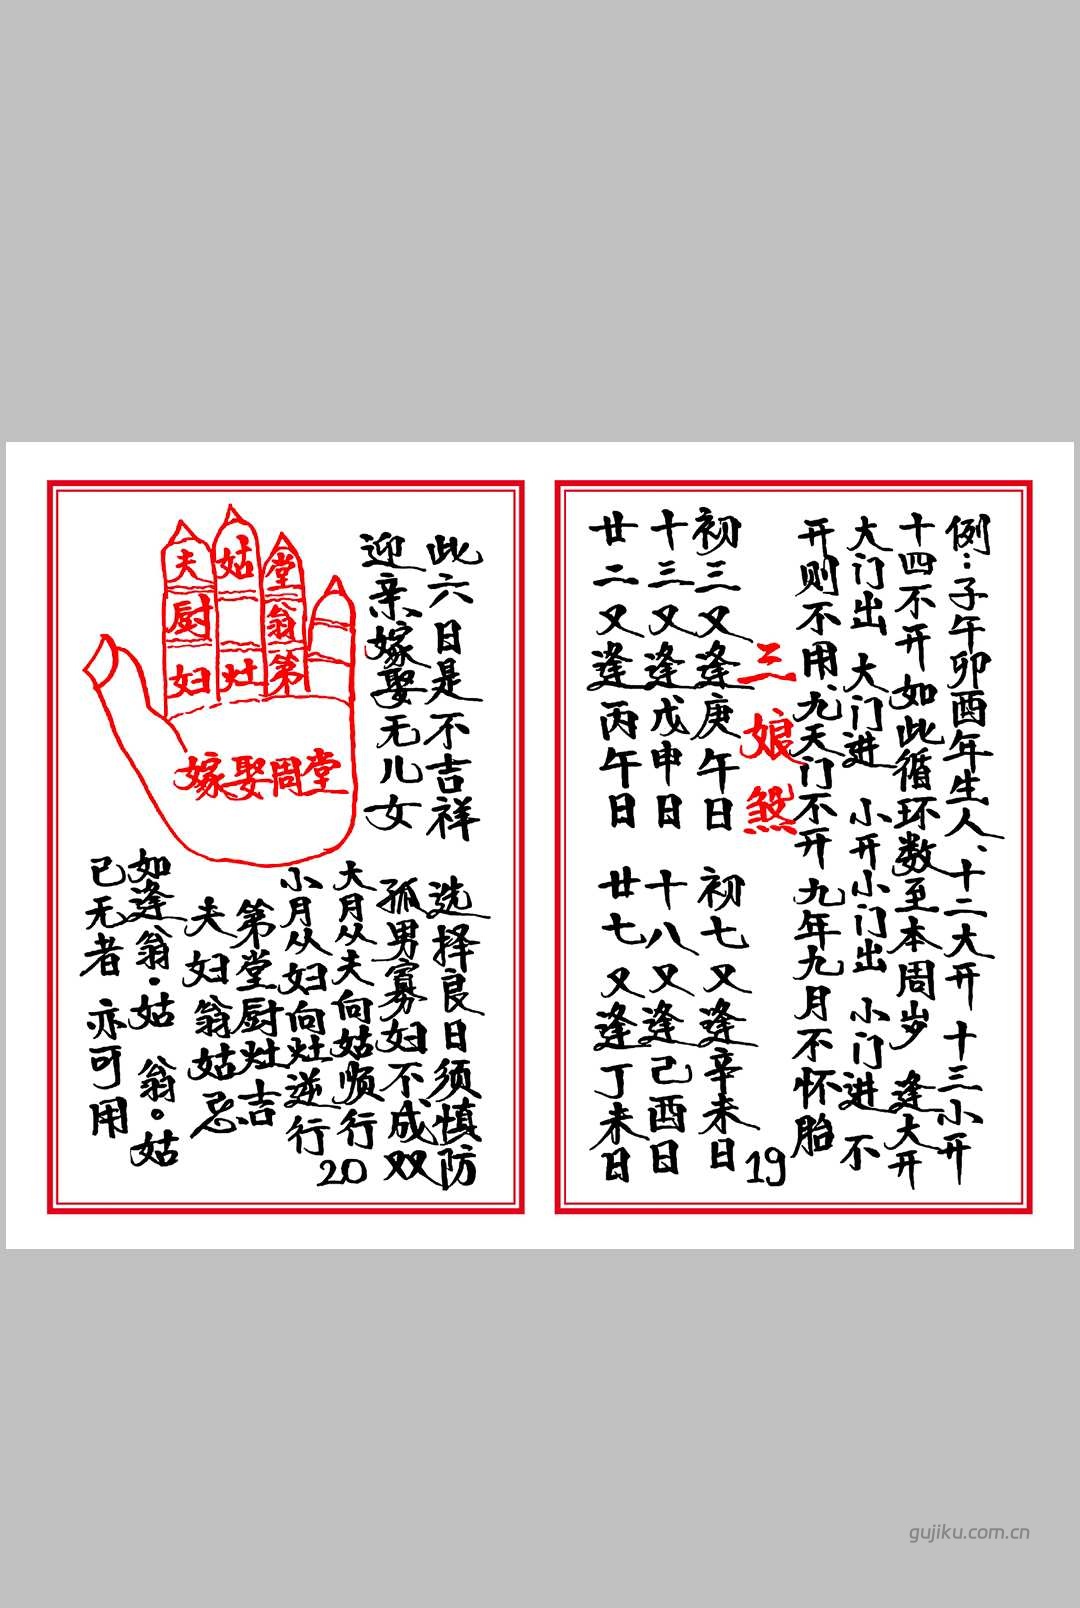 例：子午卯酉年生人、十二大开 十三小开
十四不开 如此循环数至本周岁 逢大开
大门出 大门进 小开小门出 小门进 不
开则不用、九天门不开 九年九月不怀胎
三娘煞
初三又逢庚午日 初七又逢辛未日
十三又逢戊申日 十八又逢己酉日
廿二又逢丙午日 廿七又逢丁未日
19
此六日是不吉祥 选择良日须慎防
迎亲嫁娶无儿女 孤男寡妇不成双
夫 姑 堂
厨 翁
妇 灶 第
嫁娶周堂
大月从夫向姑顺行
小月从妇向灶逆行
第堂厨灶吉
夫妇翁姑忌
如逢翁·姑 翁。姑
已无者 亦可用
20
gujiku.com.cn